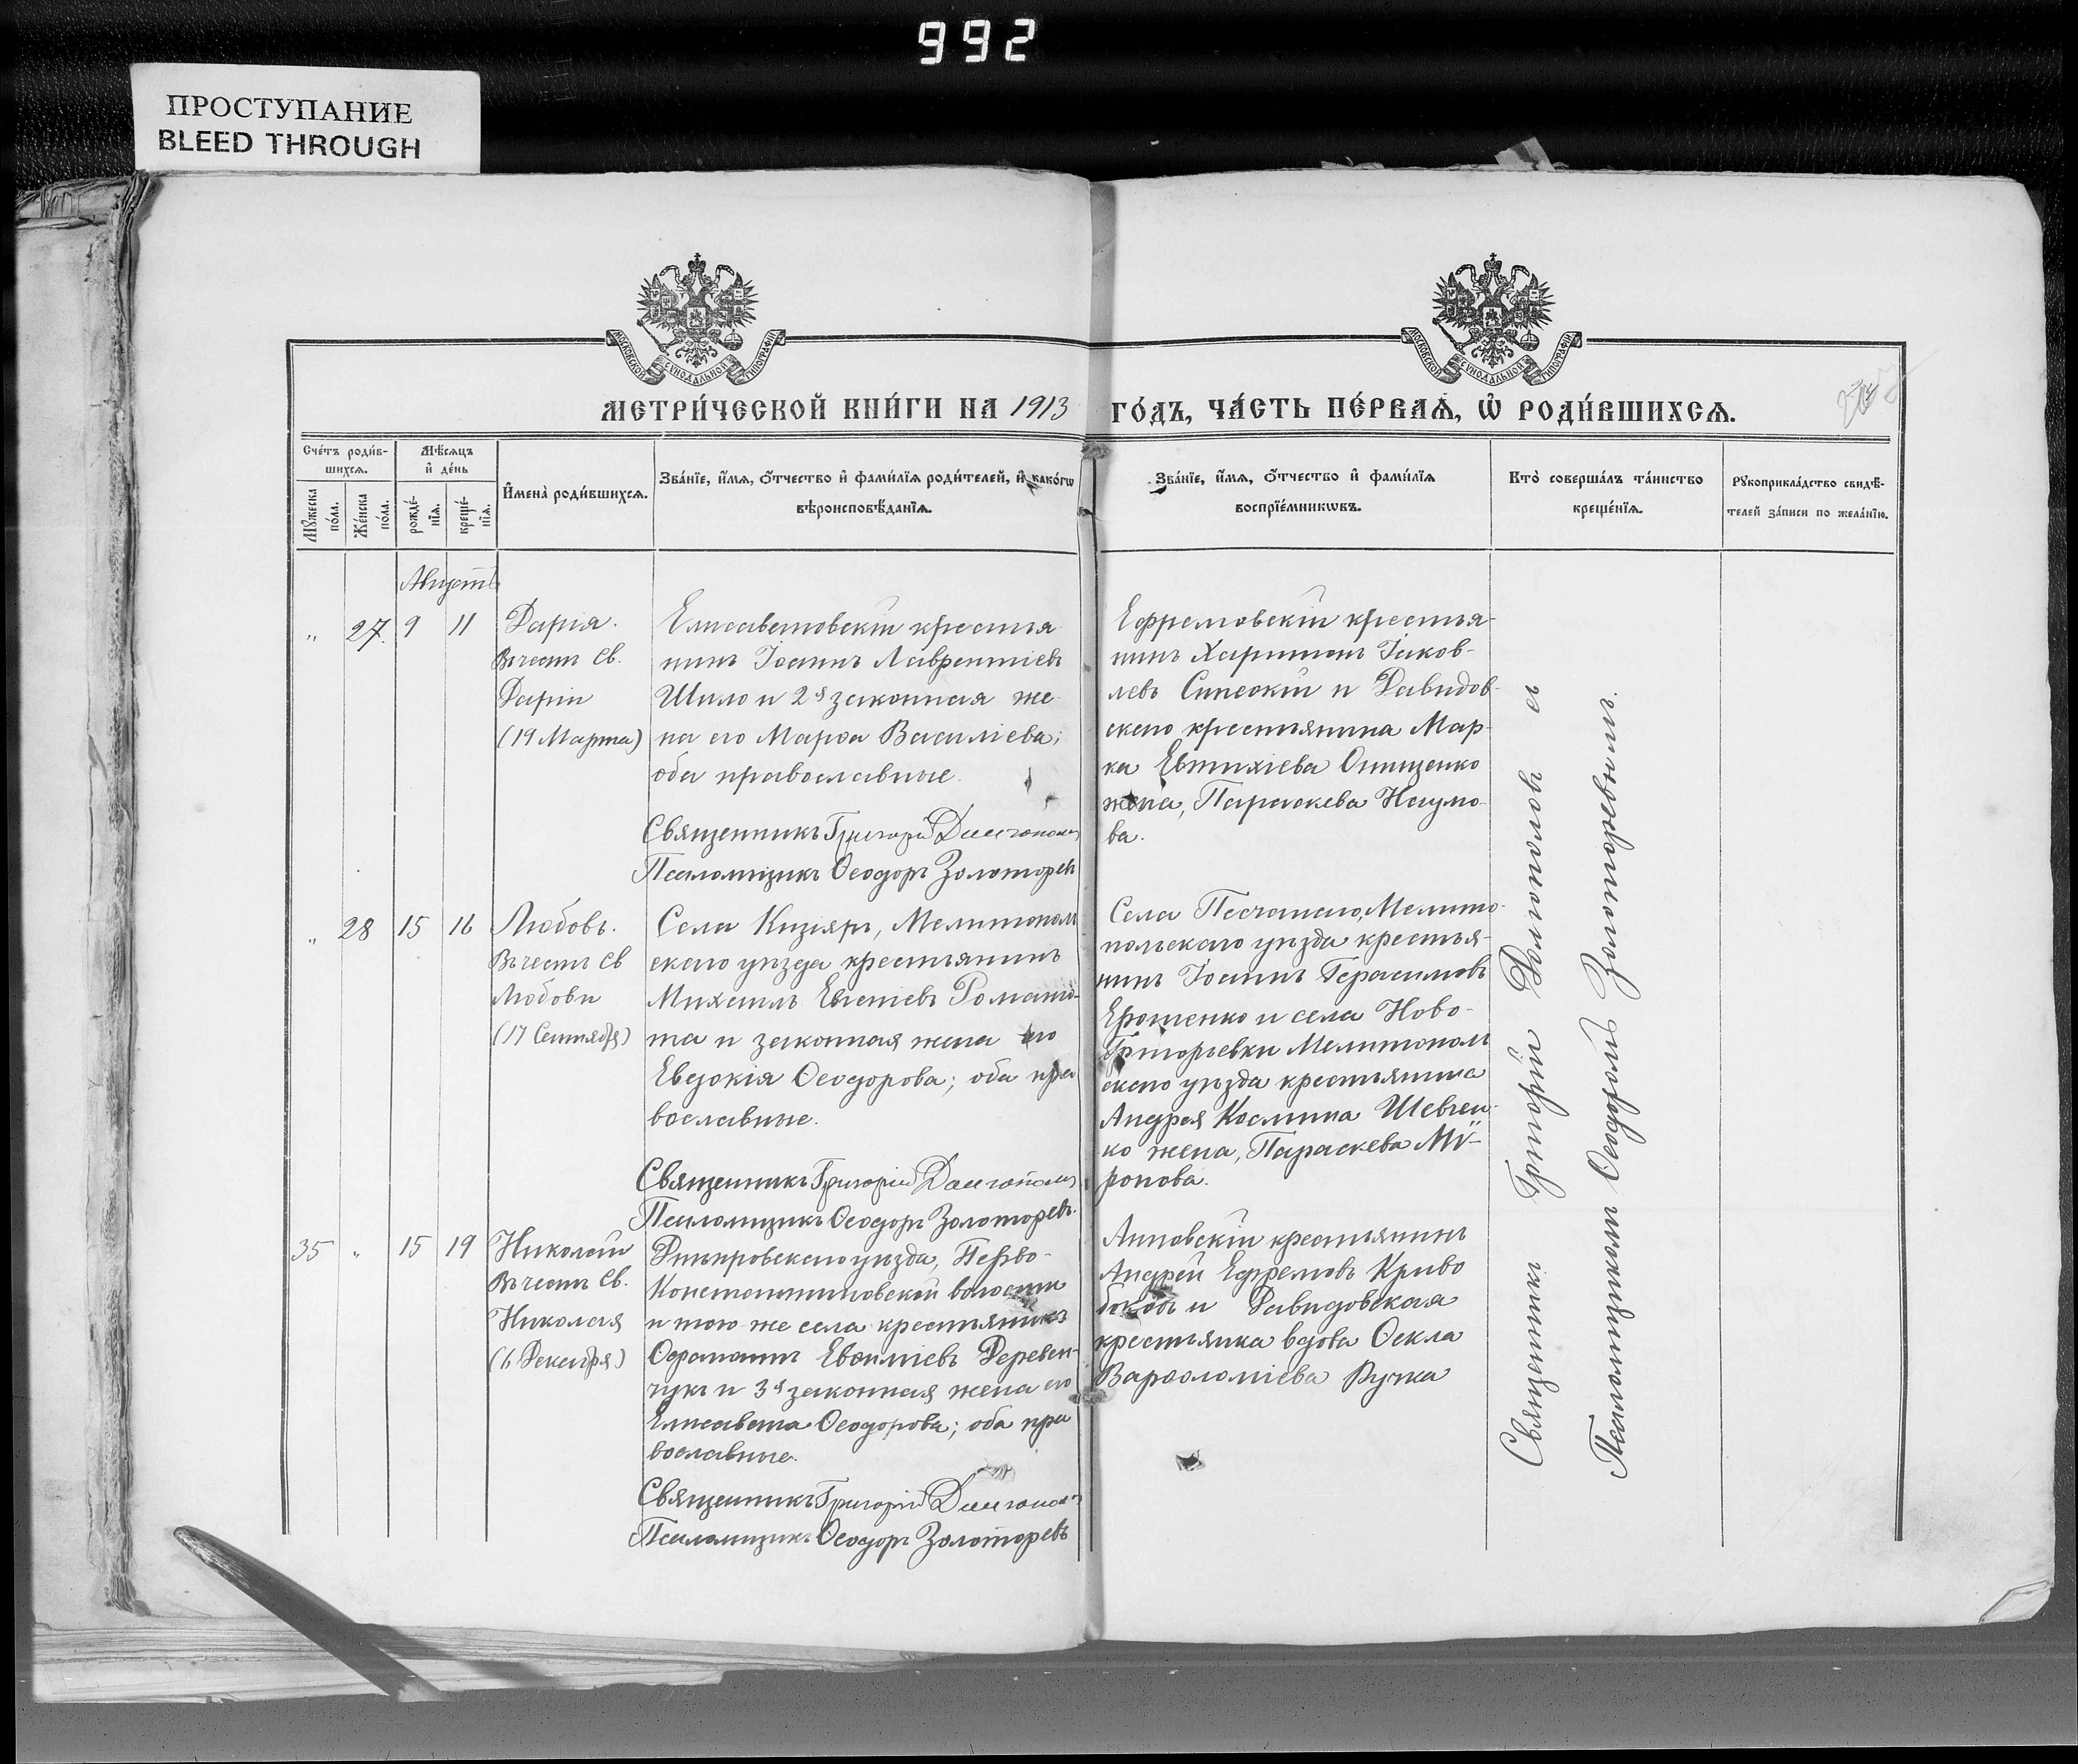 992
ПРОСТУПАНИЕ
BLEED THROUGH
МОСКОВСКОЙ СѴНОДАЛЬНОЙ ТИПОГРАФІИ
МОСКОВСКОЙ СѴНОДАЛЬНОЙ ТИПОГРАФІИ
МЕТРИ́ЧЕСКОЙ КНИ́ГИ НА 1913
ГО́ДЪ, ЧА́СТЬ ПЕ́РВАѦ, Ѡ҆ РОДИ́ВШИХСѦ.
Сче́тъ роди́в-
шихсѧ.
Мꙋ́жеска
по́ла.
Же́нска
по́ла.
Мѣ́сѧцъ
и҆ де́нь
рожде́-
нїѧ.
креще́-
нїѧ.
И҆мена̀ роди́вшихсѧ.
Зва́нїе, и҆́мѧ, ѻ҆́тчество и҆ фами́лїѧ роди́телей, и҆ како́гѡ
вѣроисповѣ́данїѧ.
Зва́нїе, и҆́мѧ, ѻ҆́тчество и҆ фами́лїѧ
воспрїе́мникѡвъ.
Кто̀ соверша́лъ та́инство
креще́нїѧ.
Рꙋкоприкла́дство свидѣ́-
телей за́писи по жела́нїю.
Августъ
" 27. 9 11
Дарія.
Въ честь Св.
Даріи
(19 Марта)
Елисаветовскій крестья
нинъ Іоаннъ Лаврентіевъ
Шило и 2я законная же
на его Марѳа Василіева;
оба православные.
Священникъ Григорій Долгополовъ
Псаломщикъ Ѳеодоръ Золоторевъ
Ефремовскій крестья-
нинъ Харитонъ Іаков-
левъ Синеокій и Давидов-
скаго крестьянина Мар-
ка Евтихіева Онищенко
жена, Параскева Наумо-
ва.
" 28 15 16
Любовь.
Въ честь Св
Любови
(17 Сентября)
Села Кизіяръ, Мелитополь
скаго уѣзда крестьянинъ
Михаилъ Евгеніевъ
та и законная жена его
Евдокія Ѳеодорова; оба пра
вославные.
Священникъ Григорій Долгополовъ
Псаломщикъ Ѳеодоръ Золоторевъ.
Села Песчанаго, Мелито-
польскаго уѣзда крестья-
нинъ Іоаннъ Герасимовъ
Ерошенко и села Ново-
Григорьевки Мелитополь
скаго уѣзда крестьянина
Андрея Космина Шевчен-
ко жена, Параскева Мѵ-
ронова.
35 " 15 19
Николай
Въ честь Св.
Николая
(6 Декабря)
Днѣпровскаго уѣзда, Перво-
Константиновской волости
и того же села крестьянинъ
Евѳиміевъ Деревен-
чукъ и 3я законная жена его
Елисавета Ѳеодорова; оба пра
вославные.
Священникъ Григорій Долгополовъ
Псаломщикъ Ѳеодоръ Золоторевъ
Анновскій крестьянинъ
Андрей Ефремовъ Криво
боковъ и Давидовская
крестьянка вдова Ѳекла
Варѳоломіева Ручка
Священникъ Григорій Долгополовъ съ
Псаломщикомъ Ѳеодоромъ Золоторевымъ.